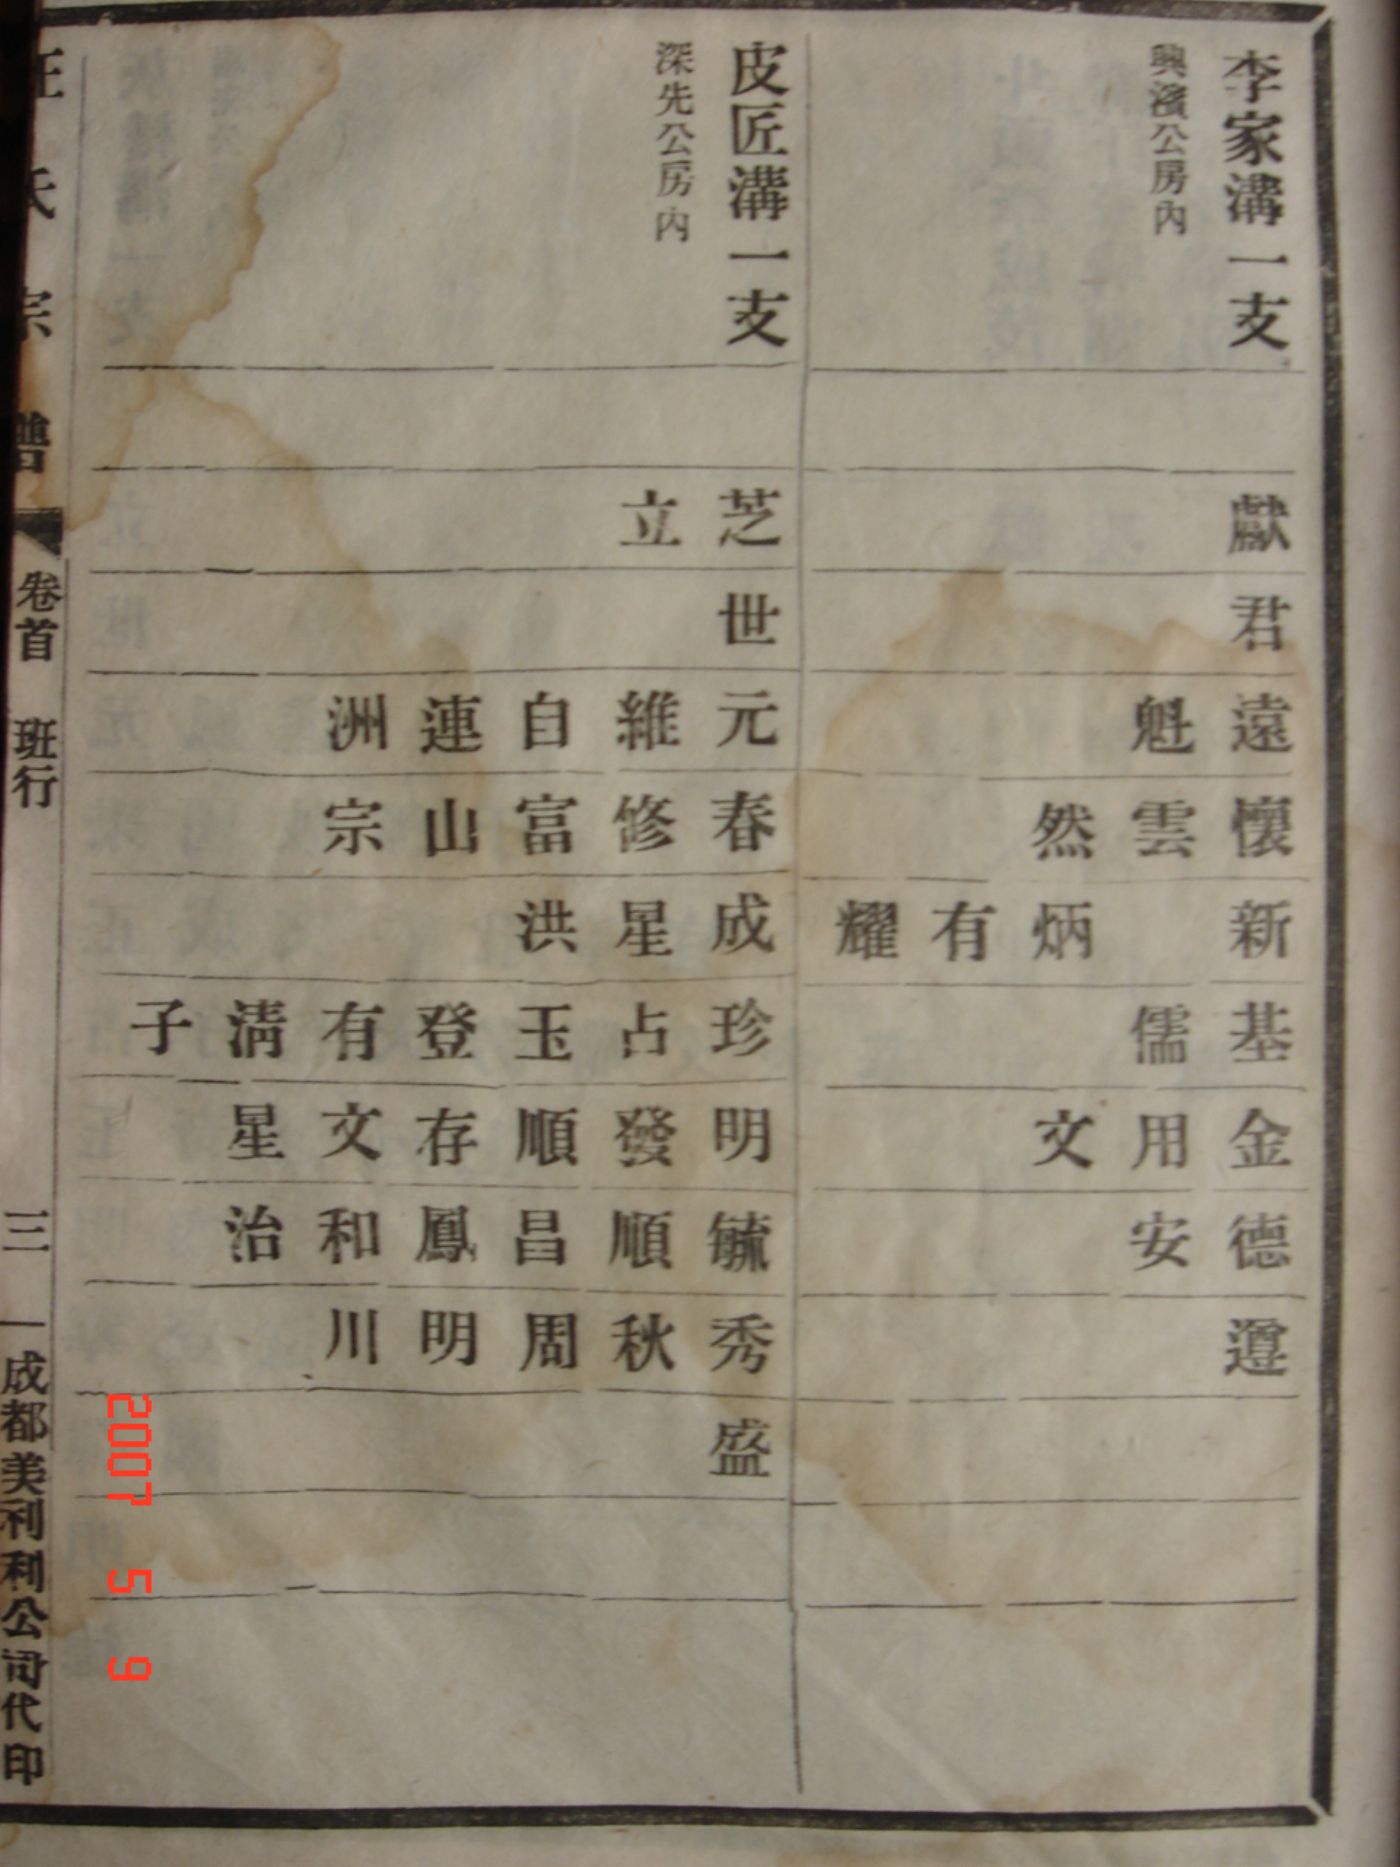 李家溝一支
興濱公房內
獻
君
遠 魁
懷 雲 然
新 炳 有 耀
基 儒
金 用 文
德 安
遵
皮匠溝一支
深先公房內
芝 立
世
元 維 自 連 洲
春 修 富 山 宗
成 星 洪
珍 占 玉 登 有 清 子
明 發 順 存 文 星
毓 順 昌 鳳 和 治
秀 秋 周 明 川
盛
氏宗譜
卷首 班行
三
成都美利利公司代印
2007 5 9